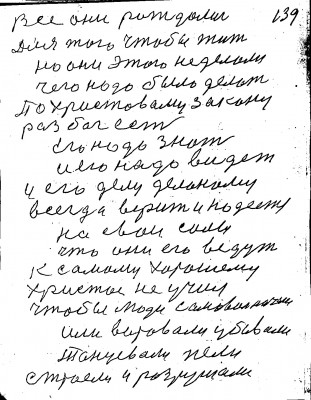 139
все они рождали
для того чтобы жит
но они этого неделали
чего надо было делат
по христовому закону
раз бог ест
его надо знат
и его надо видет
и его делу делному
всегда верит и надеет
на свои
что они его ведут
к самому хорошему
христос не учил
чтобы люди самовол
или воровали убивали
танцевали пели
строели и разрушали